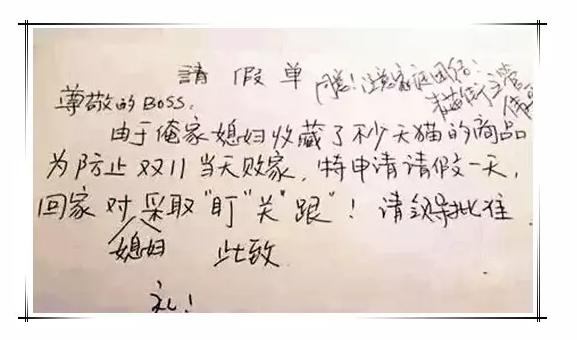 請假单
同意!注意家庭团结!
尊敬的BOSS,
由于俺家媳妇收藏了不少天猫的商品
为防止双11当天败家,特申请请假一天,
回家对采取"盯""关""跟"!请领导批准
媳妇 此致
礼!